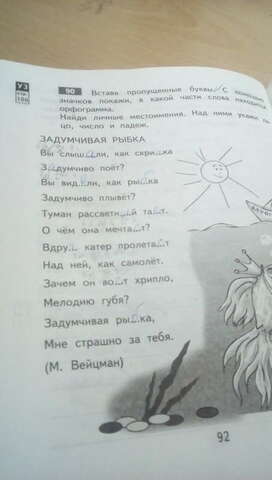 УЗ
стр.
106
90 Вставь пропущенные буквы. С помощью
значков покажи, в какой части слова находится
орфограмма.
Найди личные местоимения. Над ними укажи ли-
цо, число и падеж.
ЗАДУМЧИВАЯ РЫБКА
Вы слыш_ли, как скри_ка
З_думчиво поёт?
Вы вид_ли, как ры_ка
Задумчиво плывёт?
Туман рассветн_й та_т.
О чём она мечта_т?
Вдру_ катер пролета_т
Над ней, как самолёт.
Зачем он во_т хрипло,
Мелодию губя?
Задумчивая ры_ка,
Мне страшно за тебя.
(М. Вейцман)
92